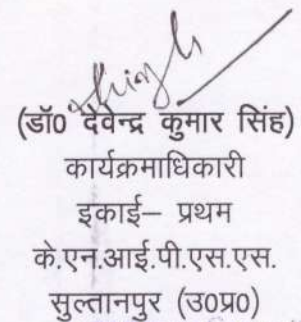 Singh
(डॉ0 देवेन्द्र कुमार सिंह)
कार्यक्रमाधिकारी
इकाई– प्रथम
के.एन.आई.पी.एस.एस.
सुल्तानपुर (उ0प्र0)